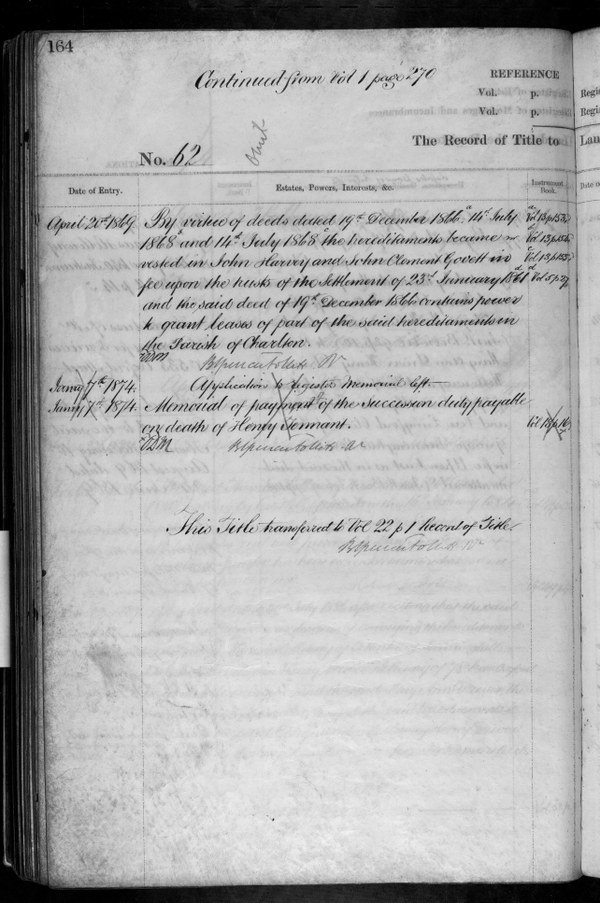 164
Continued from Vol 1 page 270
REFERENCE
Vol. p.
Vol. p.
The Record of Title to
No. 62
Date of Entry.
Estates, Powers, Interests, &c.
Instrument Book.
April 20th 1869.
By virtue of deeds dated 19th December 1866, a 14th July
1868 b and 14th July 1868 c the hereditaments became
vested in John Harvey and John Clement Govett in
fee upon the trusts of the Settlement of 23rd January 1861 d
and the said deed of 19th December 1866 contains power
to grant leases of part of the said hereditaments in
the Parish of Charlton.
Brent Spencer Follett R
Janry 7th 1874.
Application to register Memorial left
Janry 7th 1874.
Memorial of payment of the Succession duty payable
on death of Henry Tennant.
This Title transferred to Vol 22 p 1 Record of Title
Regis
Regis
Lan
Date